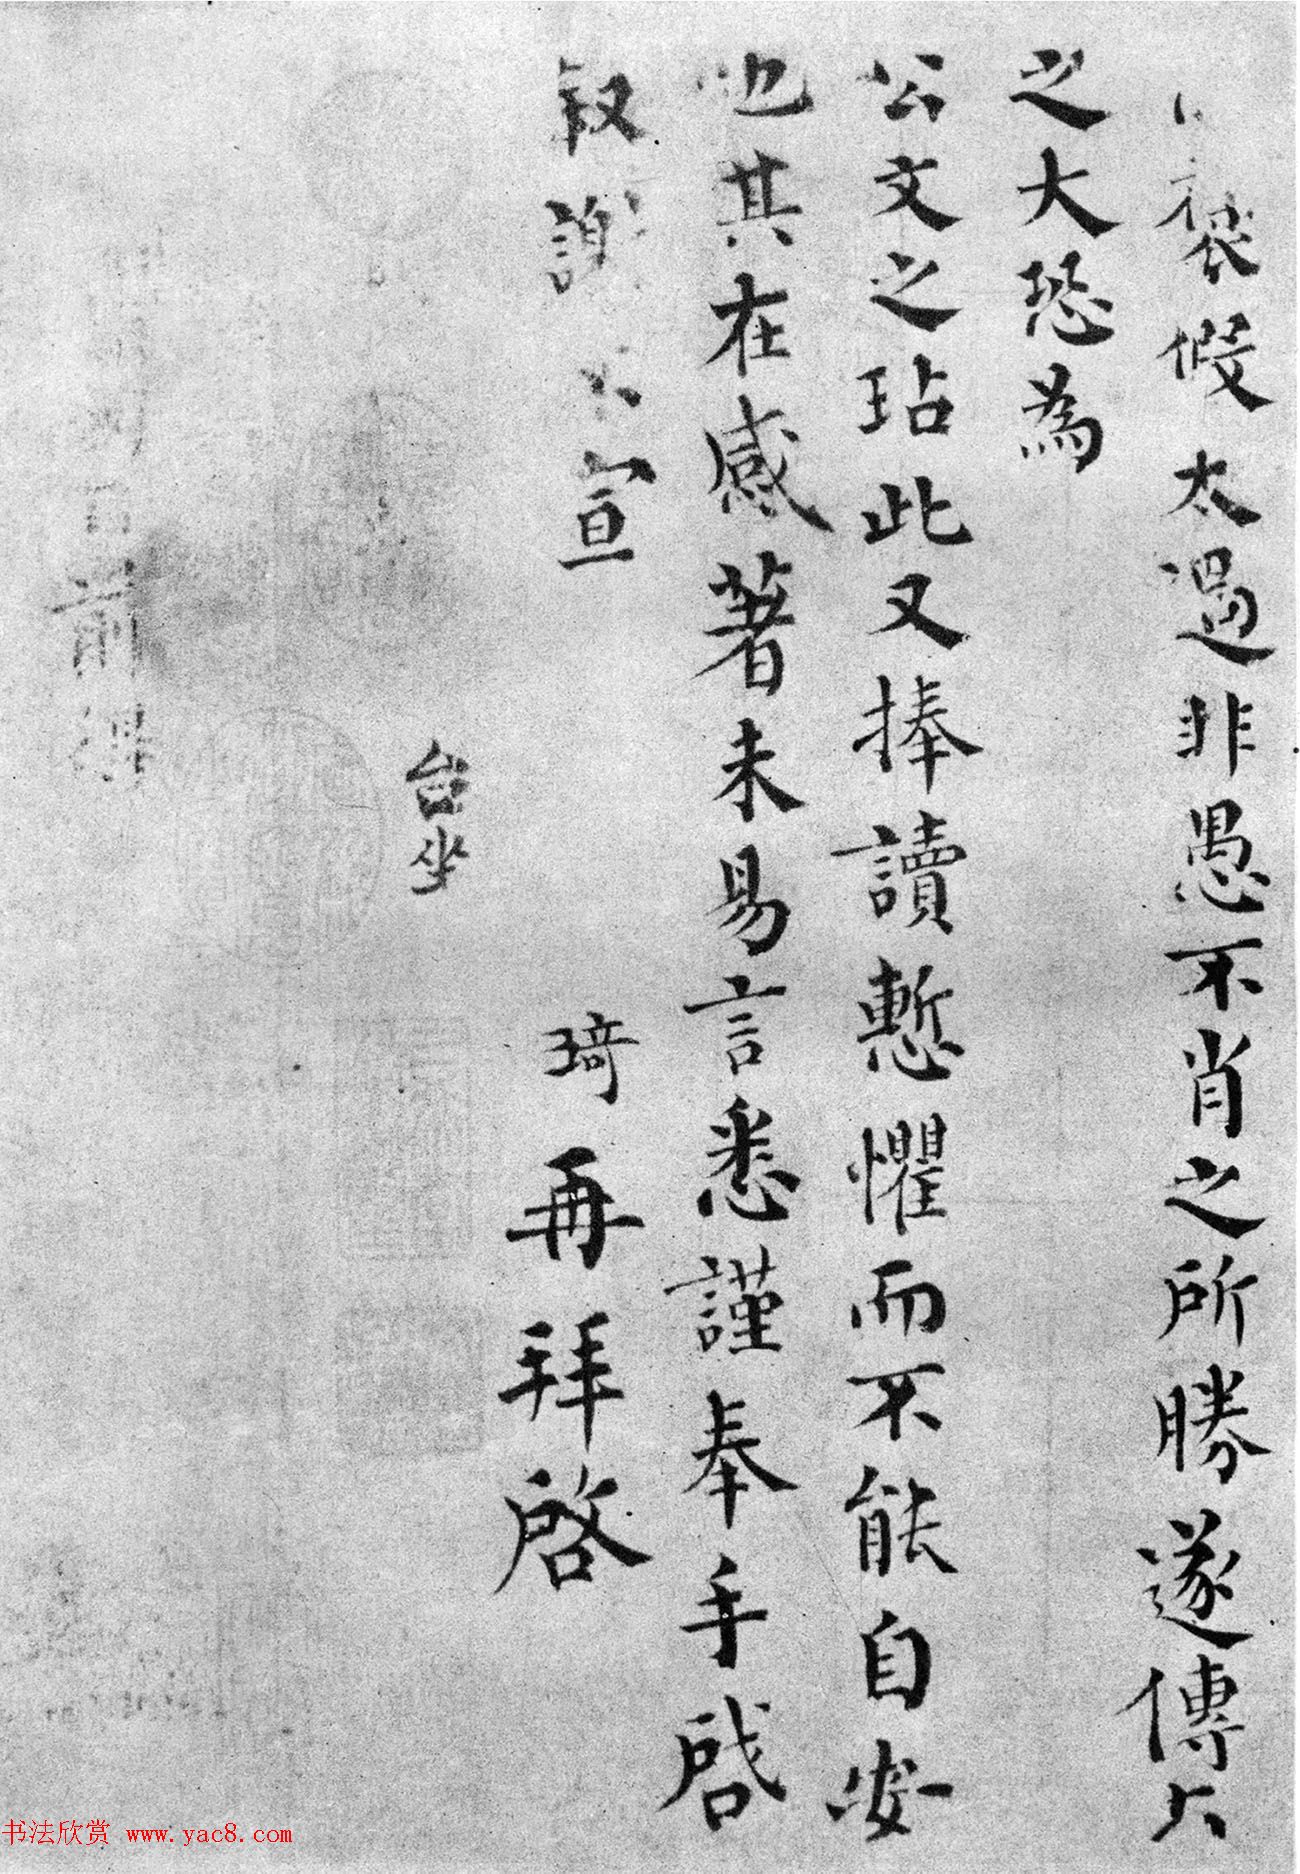 袋假太過非愚不肖之所勝遂傳
之大恐為
公文之玷此又捧讀慙懼而不能自安
也其在感著未易言悉謹奉手啓
叙謝不宣
琦再拜啓
台坐
前
书法欣赏 www.yac8.com